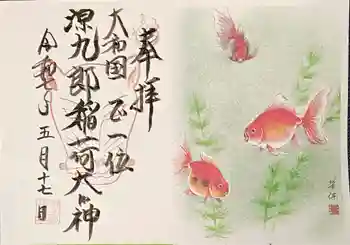 奉拝
大和国 正一位
源九郎稲荷大明神
令和七年 五月十七日